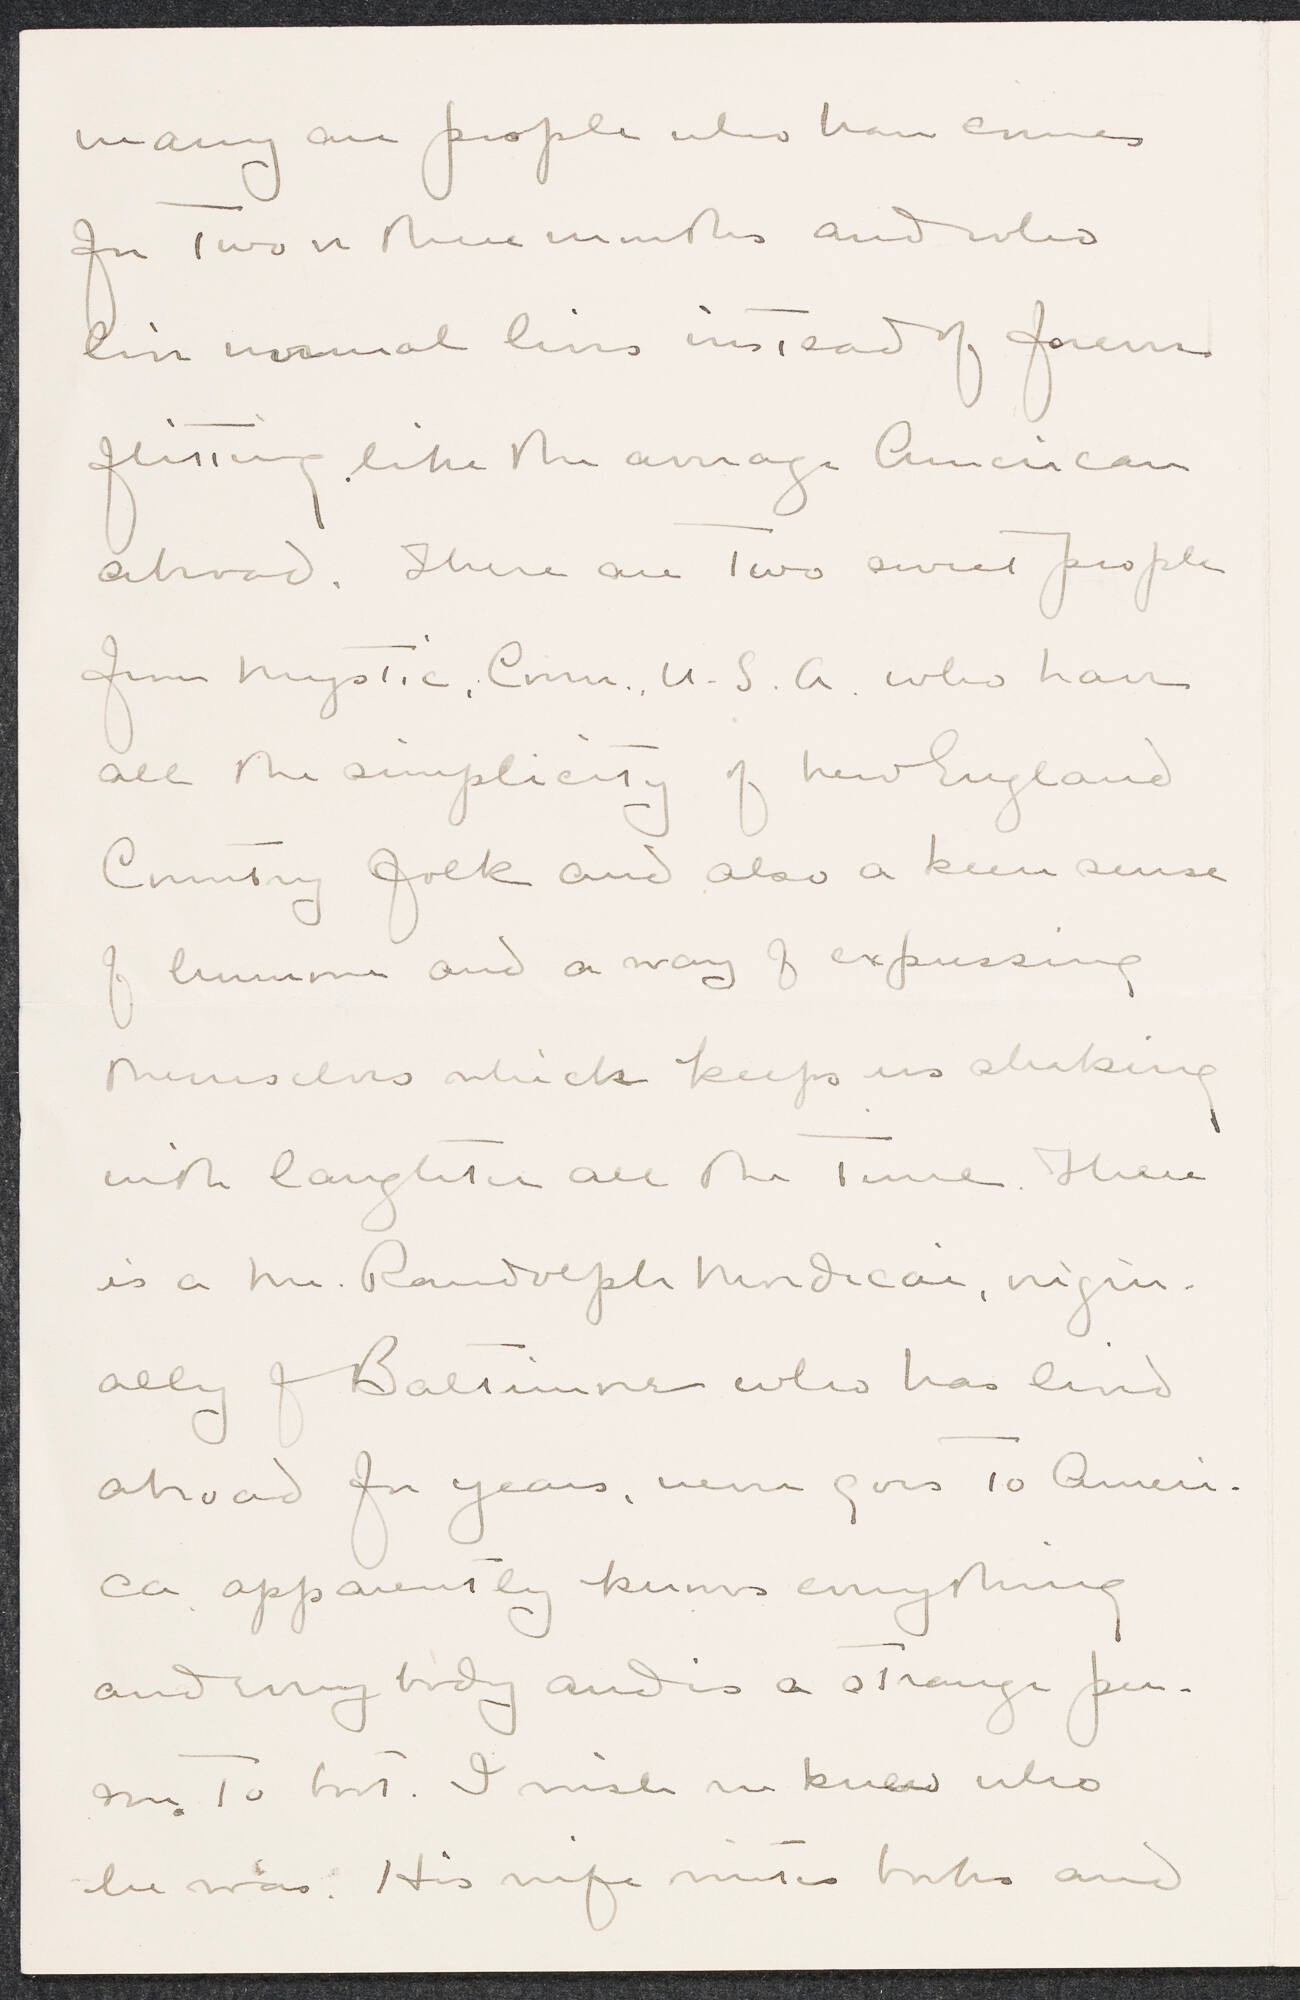 many are people who have come
for two or three months and who
live normal lives instead of forever
flitting, like the average American
abroad. There are two sweet people
from Mystic, Conn., U.S.A. who have
all the simplicity of New England
Country folk and also a keen sense
of humour and a way of expressing
themselves which keeps us shaking
with laughter all the time. There
is a Mr. Randolph Mordecai, origin-
ally of Baltimore who has lived
abroad for years, never goes to Ameri-
ca, apparently knows everything
and everybody and is a strange per-
son, to boot. I wish we knew who
he was. His wife writes books and